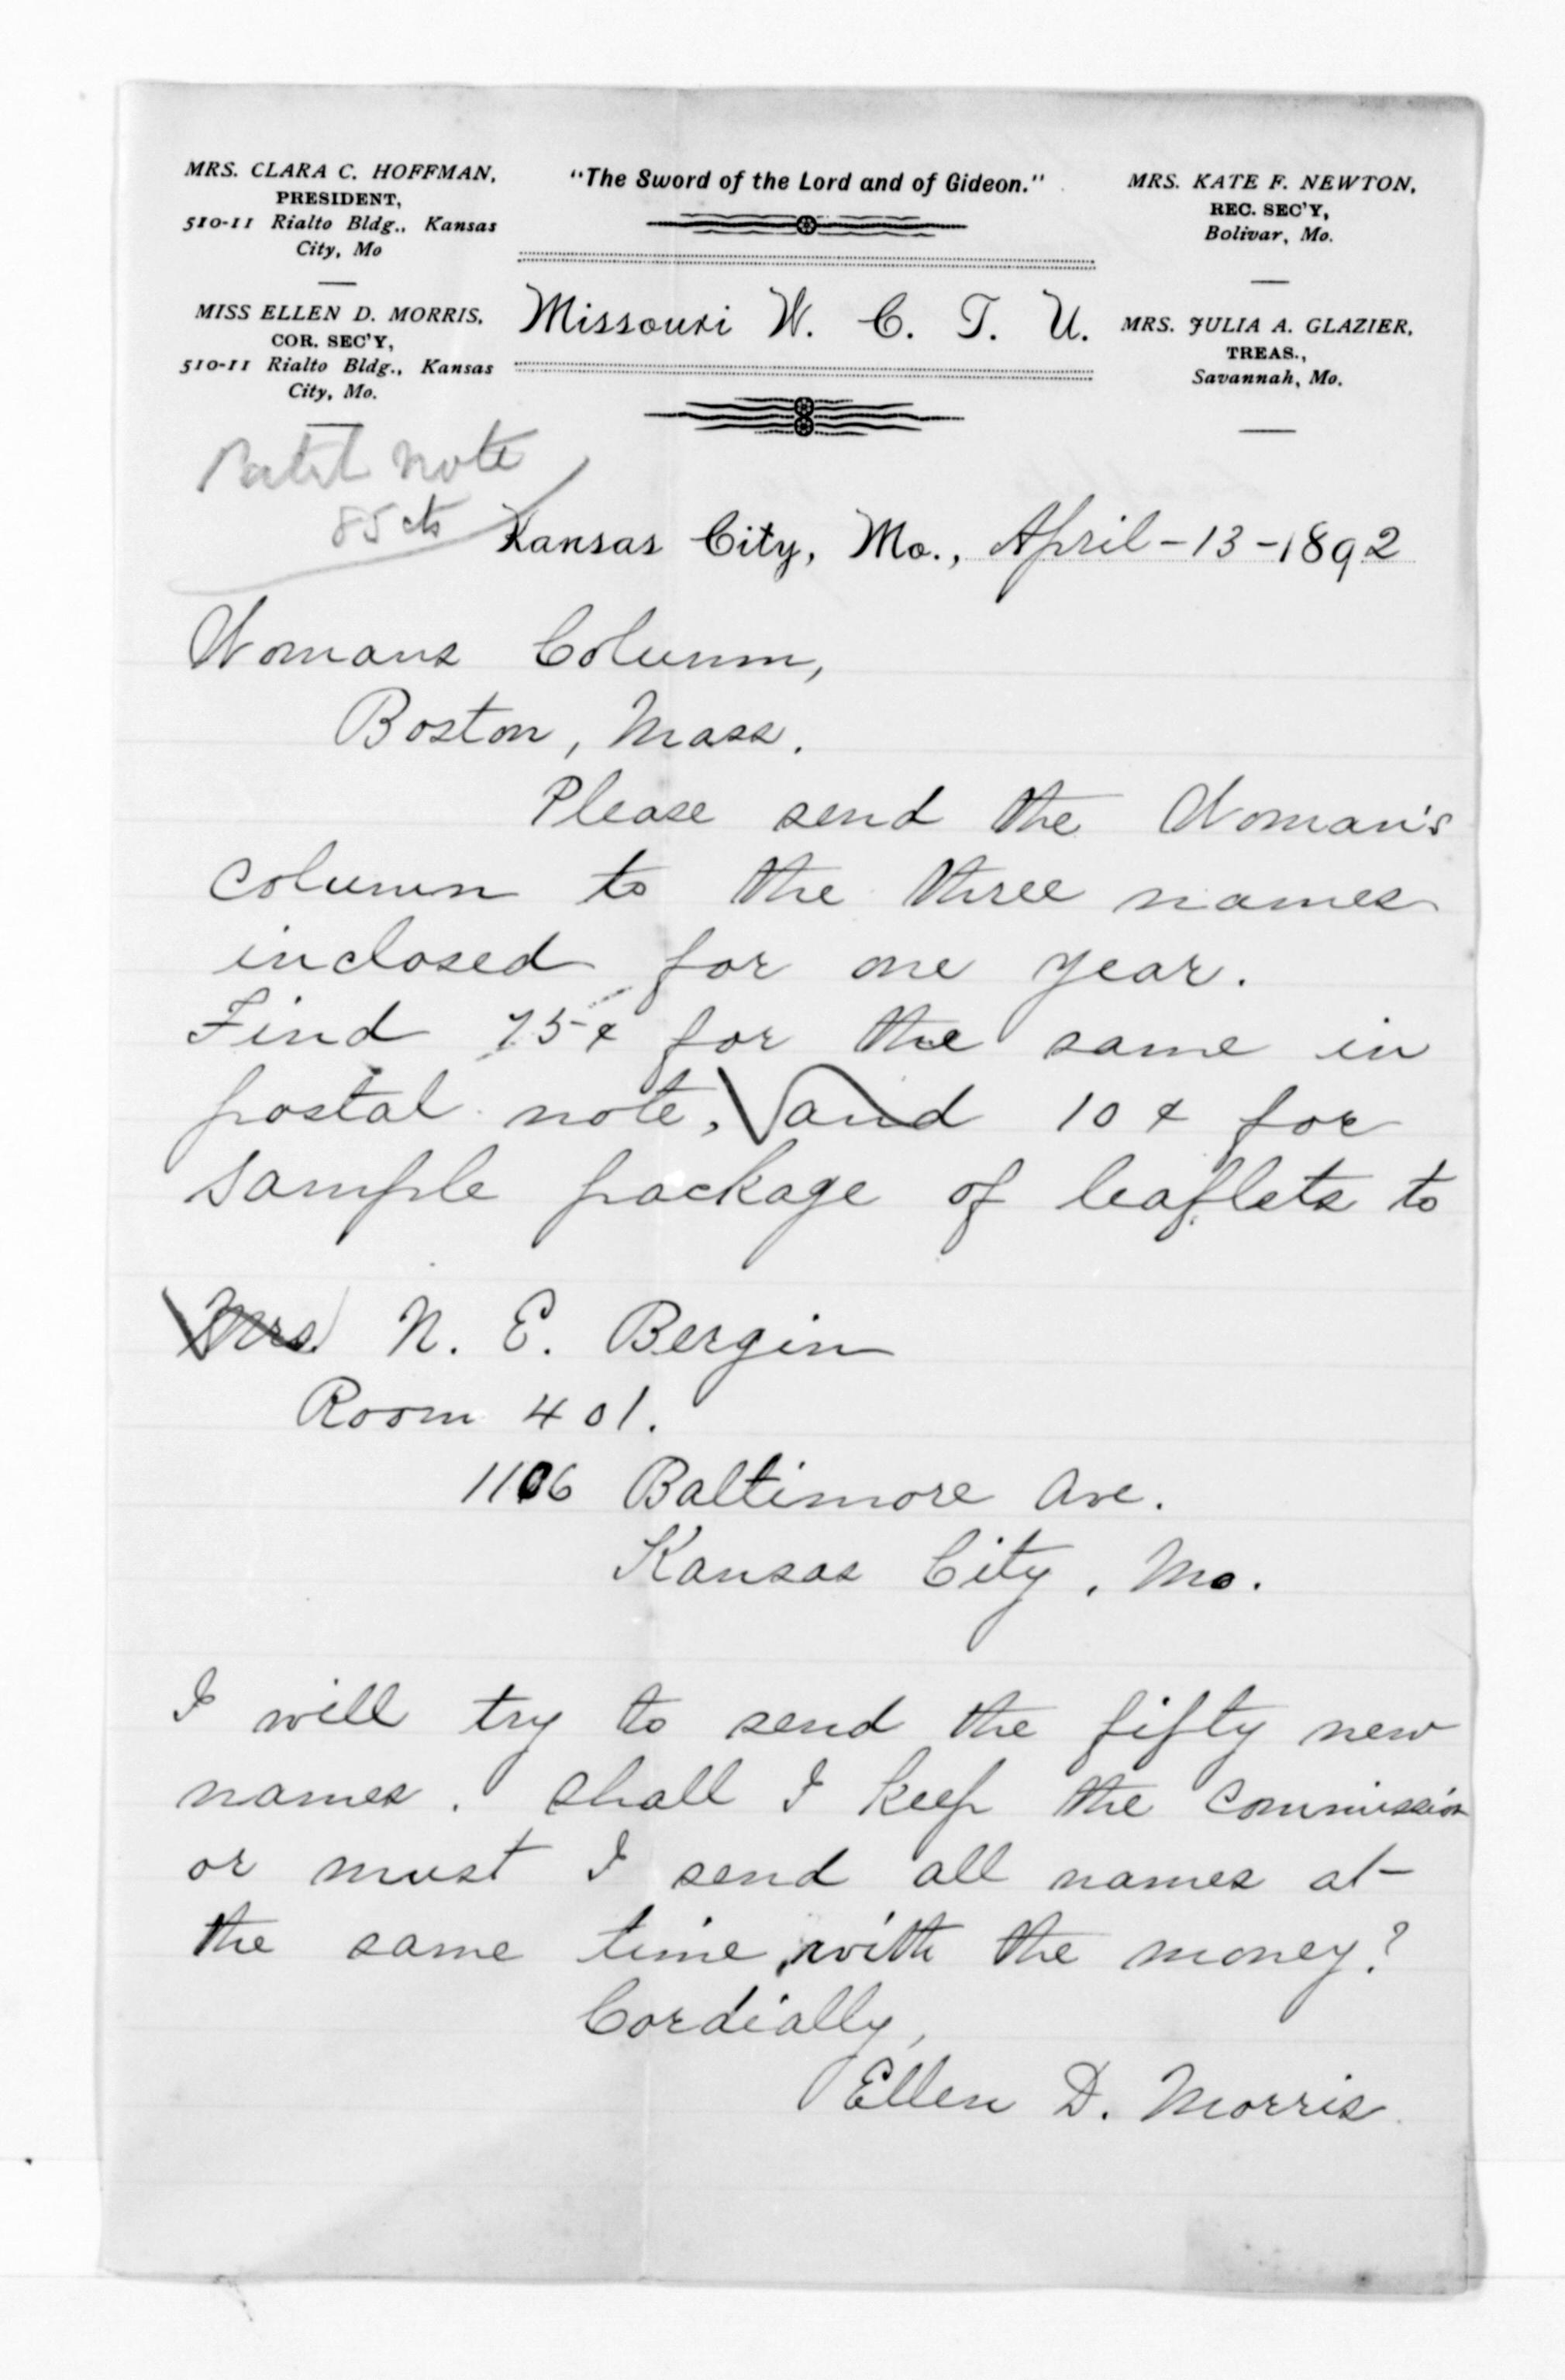 MRS. CLARA C. HOFFMAN,
PRESIDENT,
510-11 Rialto Bldg., Kansas
City, Mo
MISS ELLEN D. MORRIS,
COR. SEC'Y,
510-11 Rialto Bldg., Kansas
City, Mo.
"The Sword of the Lord and of Gideon."
Missouri W. C. T. U.
MRS. KATE F. NEWTON,
REC. SEC'Y,
Bolivar, Mo.
MRS. JULIA A. GLAZIER,
TREAS.,
Savannah, Mo.
note
85 cts
Kansas City, Mo., April-13-1892
Womans Column,
Boston, Mass.
Please send the Woman's
column to the three names
inclosed for one year.
Find 75¢ for the same in
postal note, and 10¢ for
sample package of leaflets to
Mrs. N. E. Bergin
Room 401.
1106 Baltimore Ave.
Kansas City, Mo.
I will try to send the fifty new
names. Shall I keep the commission
or must I send all names at
the same time, with the money?
Cordially,
Ellen D. Morris.